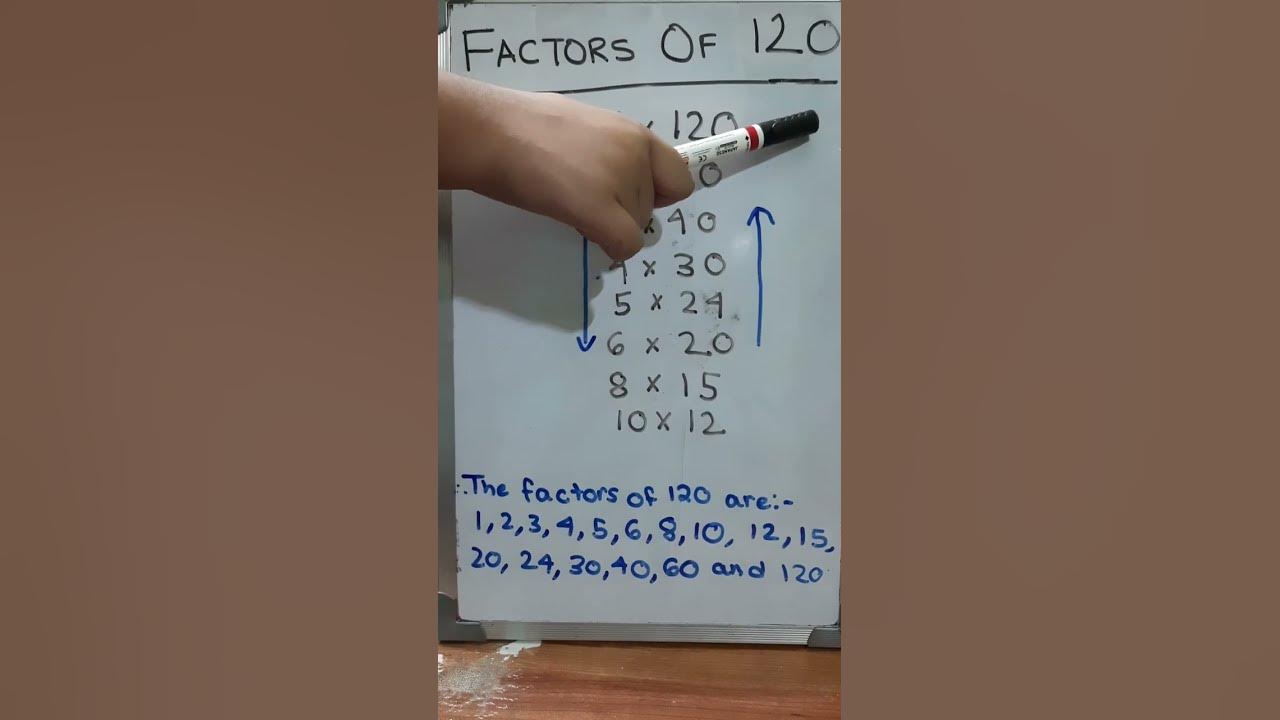 FACTORS OF 120
x 120
0
x 40
4 x 30
5 x 24
6 x 20
8 x 15
10 x 12
∴ The factors of 120 are:-
1, 2, 3, 4, 5, 6, 8, 10, 12, 15,
20, 24, 30, 40, 60 and 120